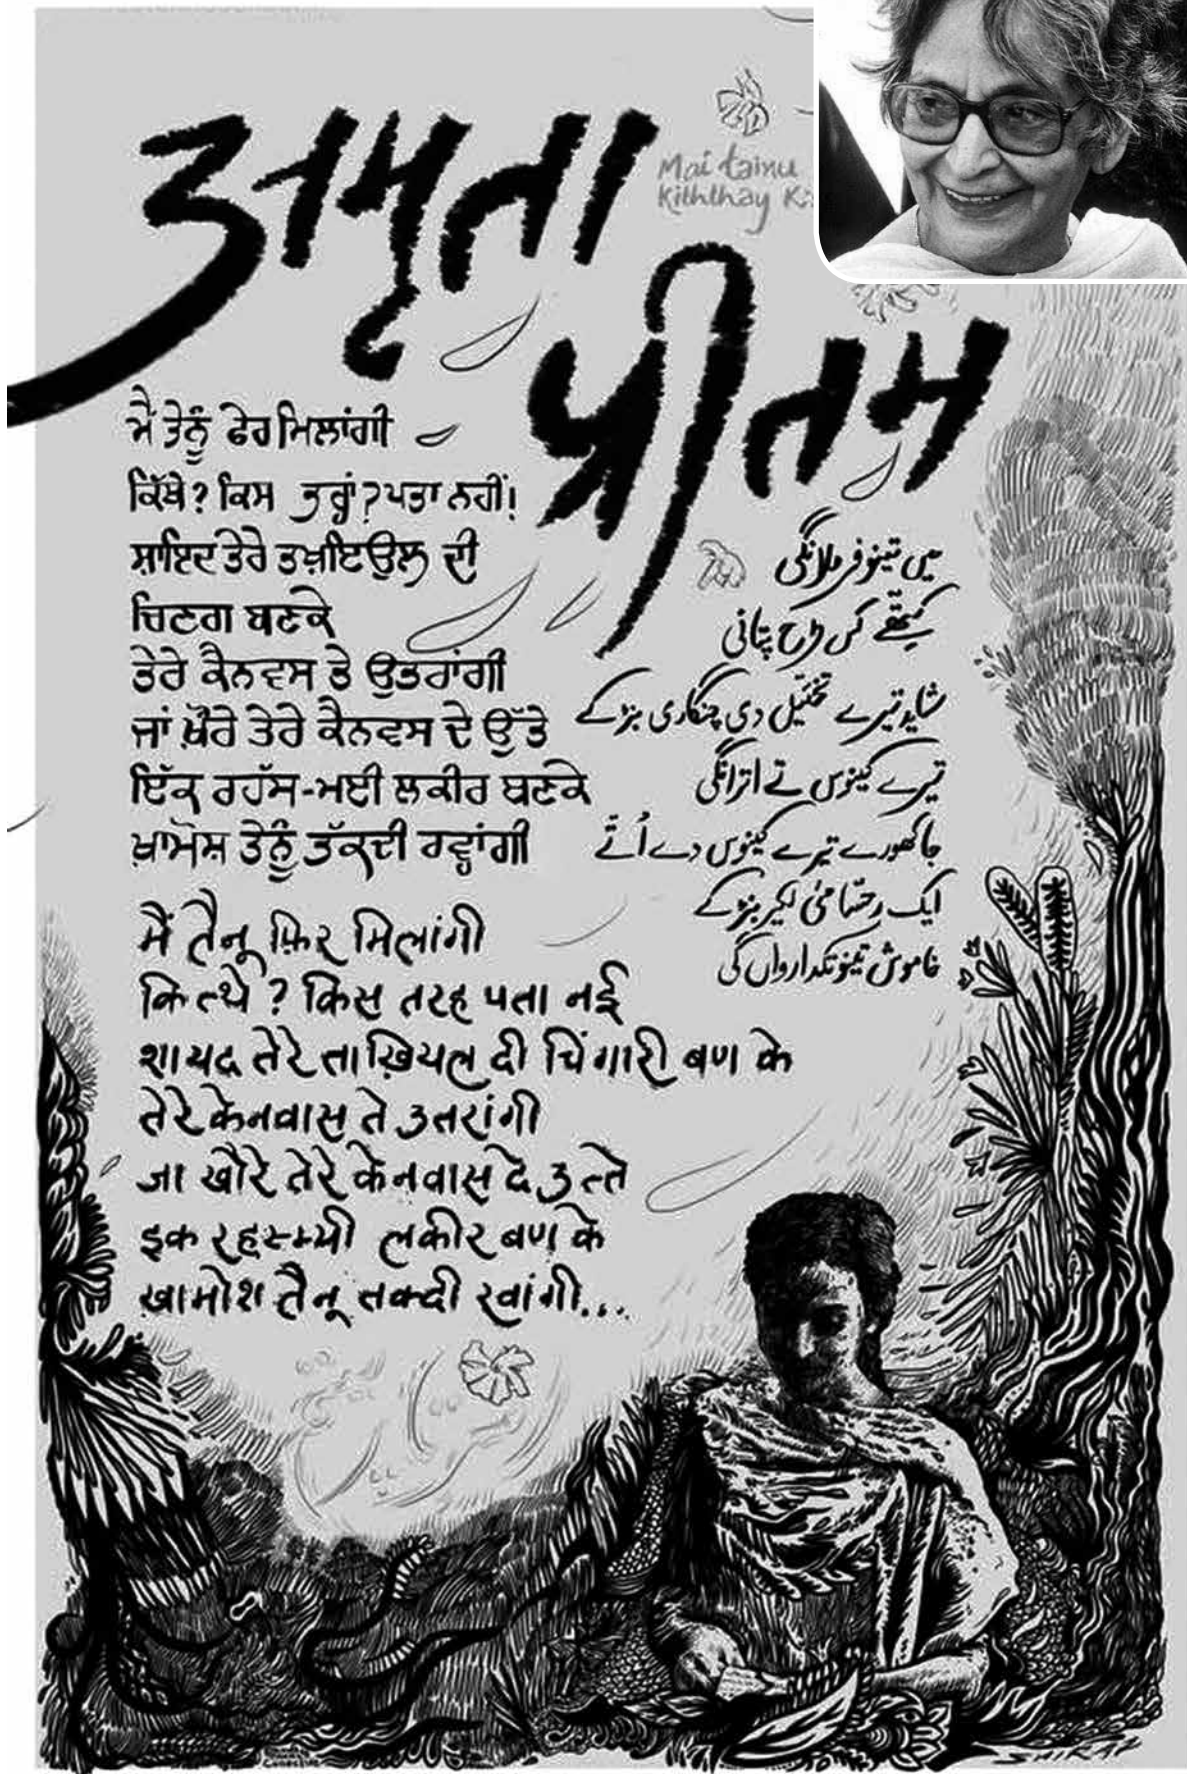 अमृता
Mai tainu
Kiththay
प्रीतम
ਮੈਂ ਤੈਨੂੰ ਫੇਰ ਮਿਲਾਂਗੀ
ਕਿੱਥੇ? ਕਿਸ ਤਰ੍ਹਾਂ? ਪਤਾ ਨਹੀਂ!
ਸ਼ਾਇਦ ਤੇਰੇ ਤਖ਼ਇਉਲ ਦੀ
ਚਿਣਗ ਬਣਕੇ
ਤੇਰੇ ਕੈਨਵਸ ਤੇ ਉਤਰਾਂਗੀ
ਜਾਂ ਖ਼ੌਰੇ ਤੇਰੇ ਕੈਨਵਸ ਦੇ ਉੱਤੇ
ਇੱਕ ਰਹੱਸ-ਮਈ ਲਕੀਰ ਬਣਕੇ
ਖ਼ਾਮੋਸ਼ ਤੈਨੂੰ ਤੱਕਦੀ ਰਵ੍ਹਾਂਗੀ
میں تینو فر ملانگی
کیتھے کس طرح پتا نی
شاید تیرے تخئیل دی چنگاری بنڑ کے
تیرے کینوس تے اترانگی
جا کھورے تیرے کینوس دے اُتے
ایک رحسامئی لکیر بنڑ کے
خاموش تینو تکدا رواں گی
मैं तैनू फ़िर मिलांगी
कित्थे? किस तरह पता नई
शायद तेरे ताख़ियल दी चिंगारी बण के
तेरे केनवास ते उतरांगी
जा खौरे तेरे केनवास दे उत्ते
इक रहस्म्यी लकीर बण के
ख़ामोश तैनू तक्दी रवांगी...